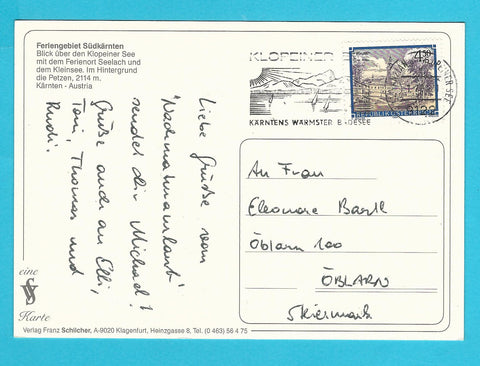 Feriengebiet Südkärnten
Blick über den Klopeiner See
mit dem Ferienort Seelach und
dem Kleinsee. Im Hintergrund
die Petzen, 2114 m.
Kärnten - Austria
Liebe Grüße vom
"Nachmaturaurlaub"
sendet dir Michael!
Grüße auch an Elli,
Toni, Thomas und
Rudi.
eine
Karte
Verlag Franz Schilcher, A-9020 Klagenfurt, Heinzgasse 8, Tel. (0 463) 56 4 75
KLOPEINER
KÄRNTENS WÄRMSTER BADESEE
4.50
REPUBLIK ÖSTERREICH
An Frau
Eleonore Bartl
Öblarn 100
ÖBLARN
Steiermark